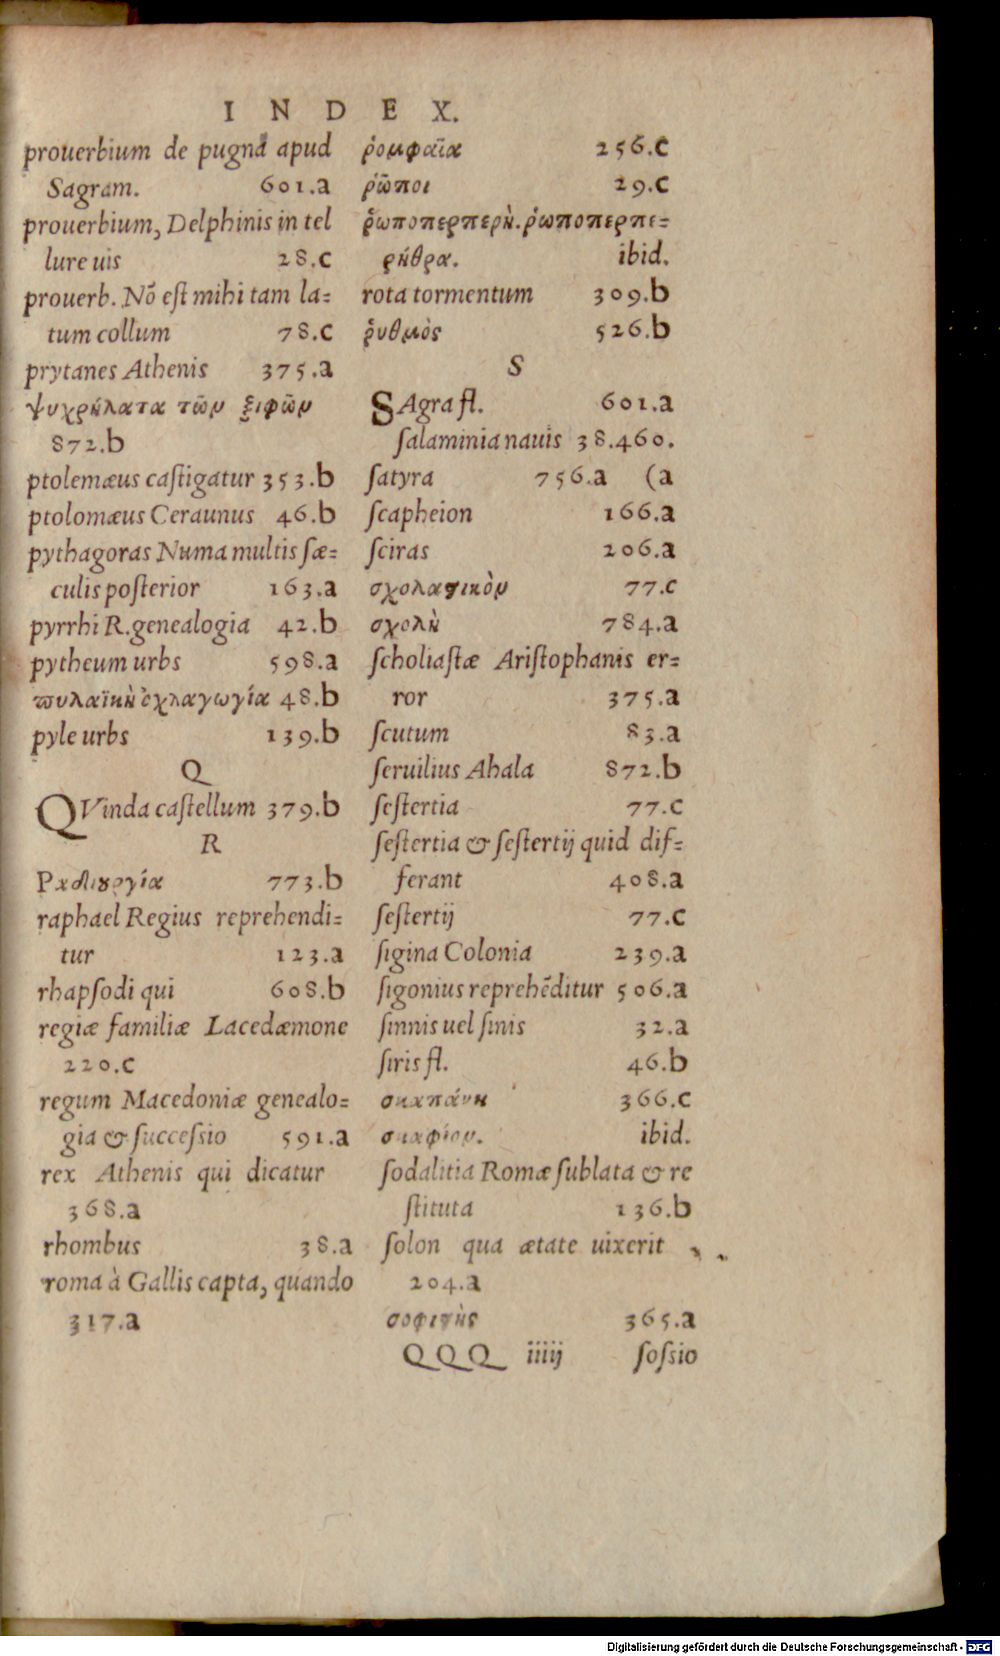 INDEX.
prouerbium de pugna apud
Sagram. 601.a
prouerbium, Delphinis in tel
lure uis 28.c
prouerb. Nõ eſt mihi tam la=
tum collum 78.c
prytanes Athenis 375.a
ψυχρήλατα τῶν ξιφῶν
872.b
ptolemæus caſtigatur 353.b
ptolomæus Ceraunus 46.b
pythagoras Numa multis ſæ=
culis poſterior 163.a
pyrrhi R. genealogia 42.b
pytheum urbs 598.a
πυλαϊκὴ ὀχλαγωγία 48.b
pyle urbs 139.b
Q
QVinda caſtellum 379.b
R
Ραδιουργία 773.b
raphael Regius reprehendi=
tur 123.a
rhapſodi qui 608.b
regiæ familiæ Lacedæmone
220.c
regum Macedoniæ genealo=
gia & ſucceſsio 591.a
rex Athenis qui dicatur
368.a
rhombus 38.a
roma à Gallis capta, quando
317.a
ῥομφαῖα 256.c
ῥῶποι 29.c
ῥωποπερπερή. ῥωποπερπε=
ρήθρα. ibid.
rota tormentum 309.b
ῥυθμὸς 526.b
S
SAgra fl. 601.a
ſalaminia nauis 38.460.
ſatyra 756.a (a
ſcapheion 166.a
ſciras 206.a
σχολαστικὸν 77.c
σχολὴ 784.a
ſcholiaſtæ Ariſtophanis er=
ror 375.a
ſcutum 83.a
ſeruilius Ahala 872.b
ſeſtertia 77.c
ſeſtertia & ſeſtertij quid dif=
ferant 408.a
ſeſtertij 77.c
ſigina Colonia 239.a
ſigonius reprehẽditur 506.a
ſinnis uel ſinis 32.a
ſiris fl. 46.b
σκαπάνη 366.c
σκαφίον. ibid.
ſodalitia Romæ ſublata & re
ſtituta 136.b
ſolon qua ætate uixerit
204.a
σοφιστὴς 365.a
QQQ iiiij ſoſsio
Digitalisierung gefördert durch die Deutsche Forschungsgemeinschaft - DFG